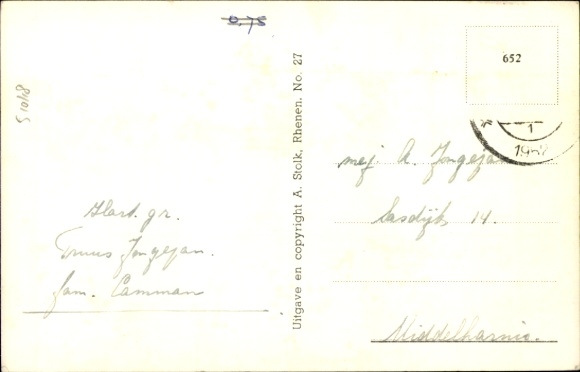 0,75
S 1048
652
1
Uitgave en copyright A. Stolk, Rhenen. No. 27
Hart. gr.
Truus Jongejan.
fam. Camman
mej. A. Jongejan
Sasdijk 14.
Middelharnis.